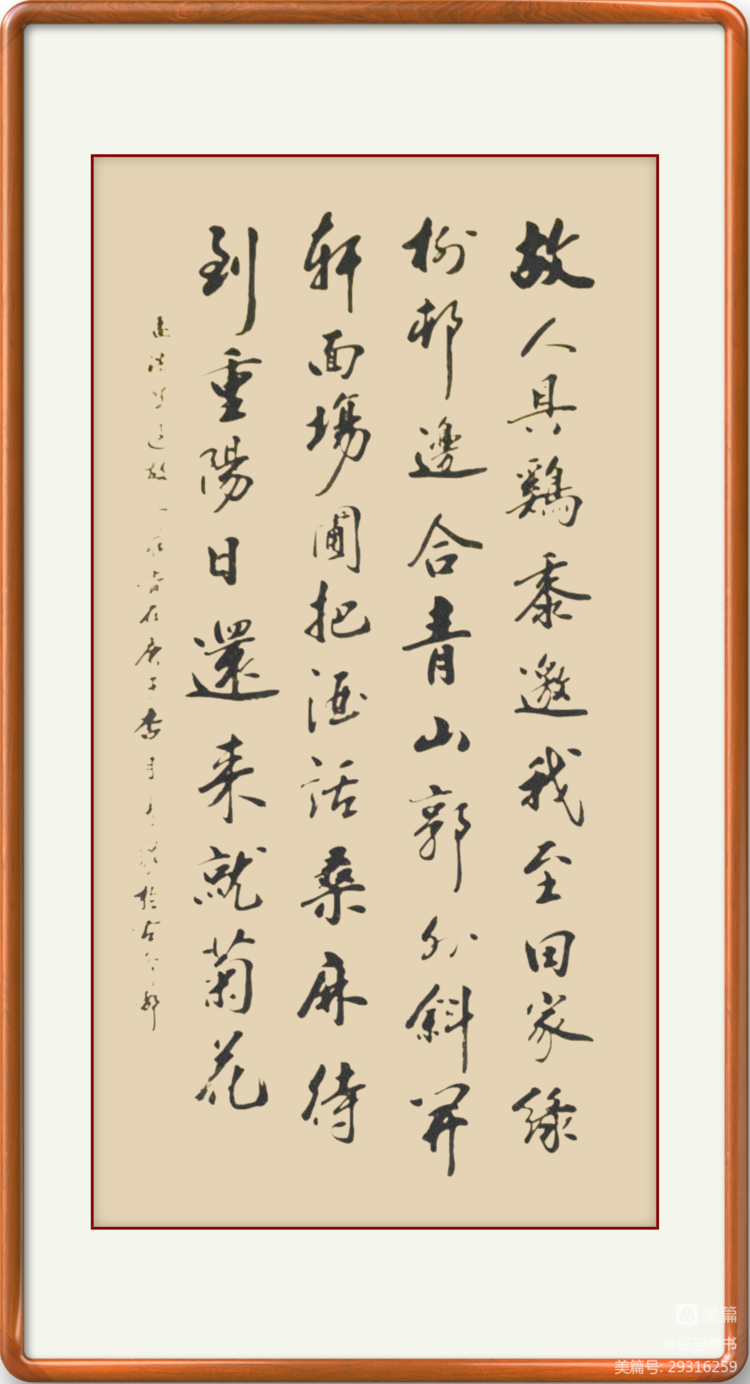 故人具鷄黍邀我至田家緑
樹邨邊合青山郭外斜開
軒面塲圃把酒話桑麻待
到重陽日還来就菊花
孟浩然過故人莊時在庚子月於古
美篇
美篇号: 29316259